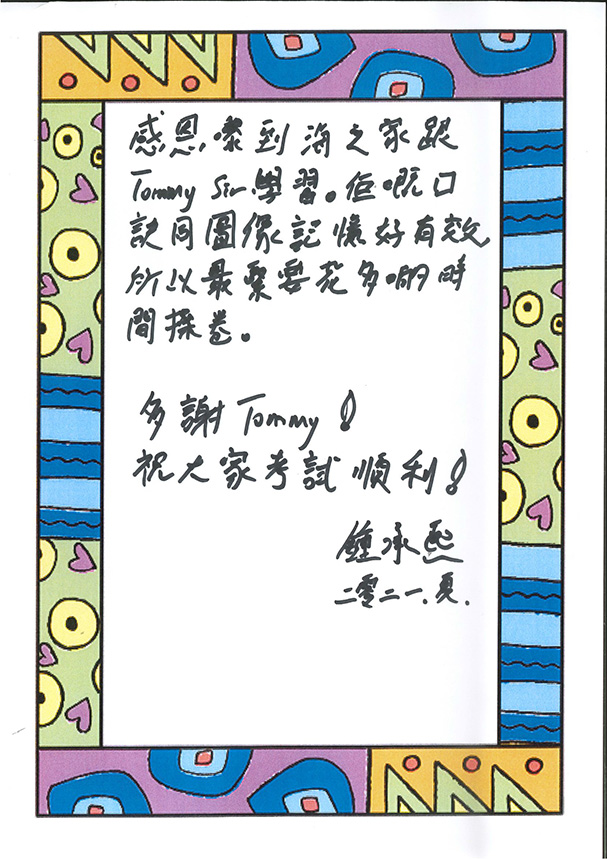 感恩嚟到海之家跟
Tommy Sir學習。佢嘅口
訣同圖像記憶好有效
所以最緊要花多啲時
間操卷。
多謝Tommy!
祝大家考試順利!
鍾承熙
二零二一.夏.